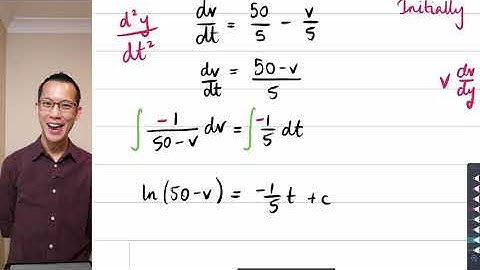 d²y/dt² dv/dt = 50/5 - v/5 Initially
dv/dt = (50-v)/5 v dv/dy
∫ -1/(50-v) dv = ∫ -1/5 dt
ln(50-v) = -1/5 t + c